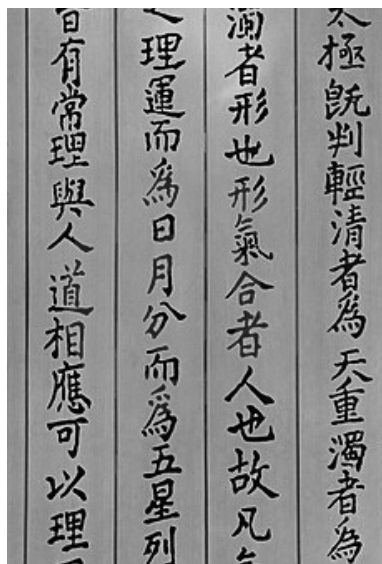 太極既判輕清者為天重濁者為
濁者形也形氣合者人也故凡
之理運而為日月分而為五星列
皆有常理與人道相應可以理